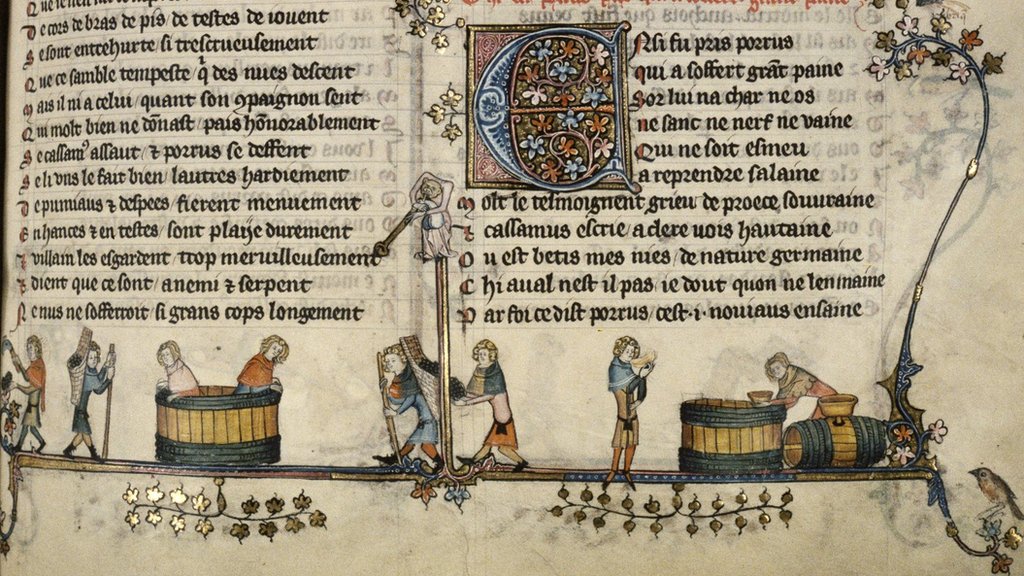 e cors de bras de pis de testes de iouent
S e sont entrehurte si trestrueusement
Q ue ce samble tempeste q̃ des nues descent
M ais il ni a celui quant son ꝯpaignon sent
Q ui molt bien ne dõnast pais hõnorablement
S e cassamꝰ assaut ⁊ porrus se deffent
S e li uns le fait bien lautres hardiement
D e pumiaus ⁊ despees fierent menuement
E n hances ⁊ en testes sont plaije durement
⁊ villain les esgardent trop merveilleusement
⁊ dient que ce sont anemi ⁊ serpent
N e nus ne soffreroit si grans cops longement
E Nsi fu pris porrus
qui a soffert grãt paine
Sor lui na char ne os
ne sanc ne nerf ne vaine
Qui ne soit esmeu
a reprendre salaine
M olt le tesmoignent grieu de proece souuraine
⁊ cassamus escrie a clere uois hautaine
O u est betis mes nies de nature germaine
C hi aual nest il pas ie dout quon ne len maine
P ar foi ce dist porrus cest .i. nouiaus ensaine